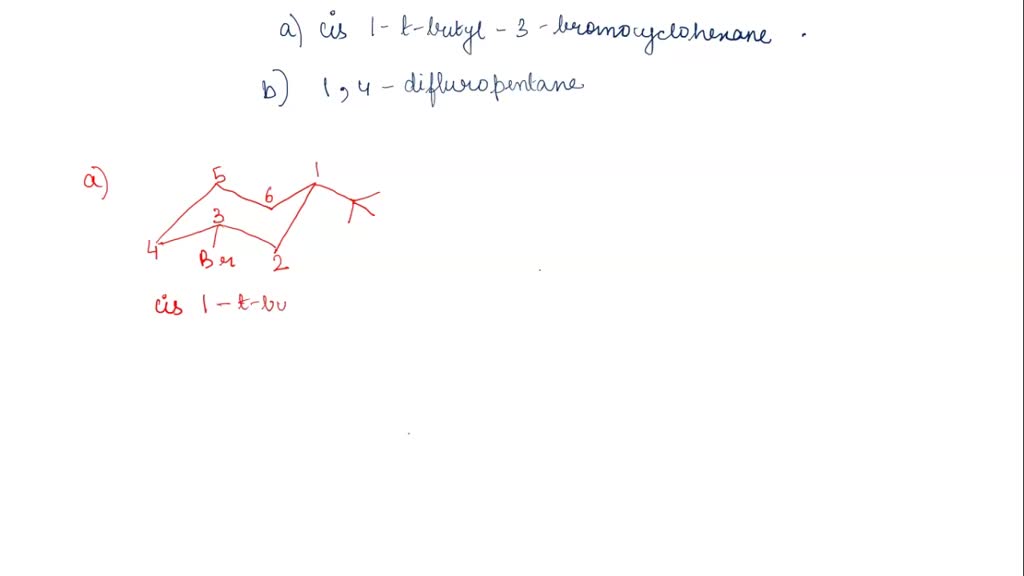 a) cis 1-t-butyl-3-bromocyclohexane.
b) 1,4-difluropentane
a)
5 1
6
3
4
Br 2
cis 1-t-bu